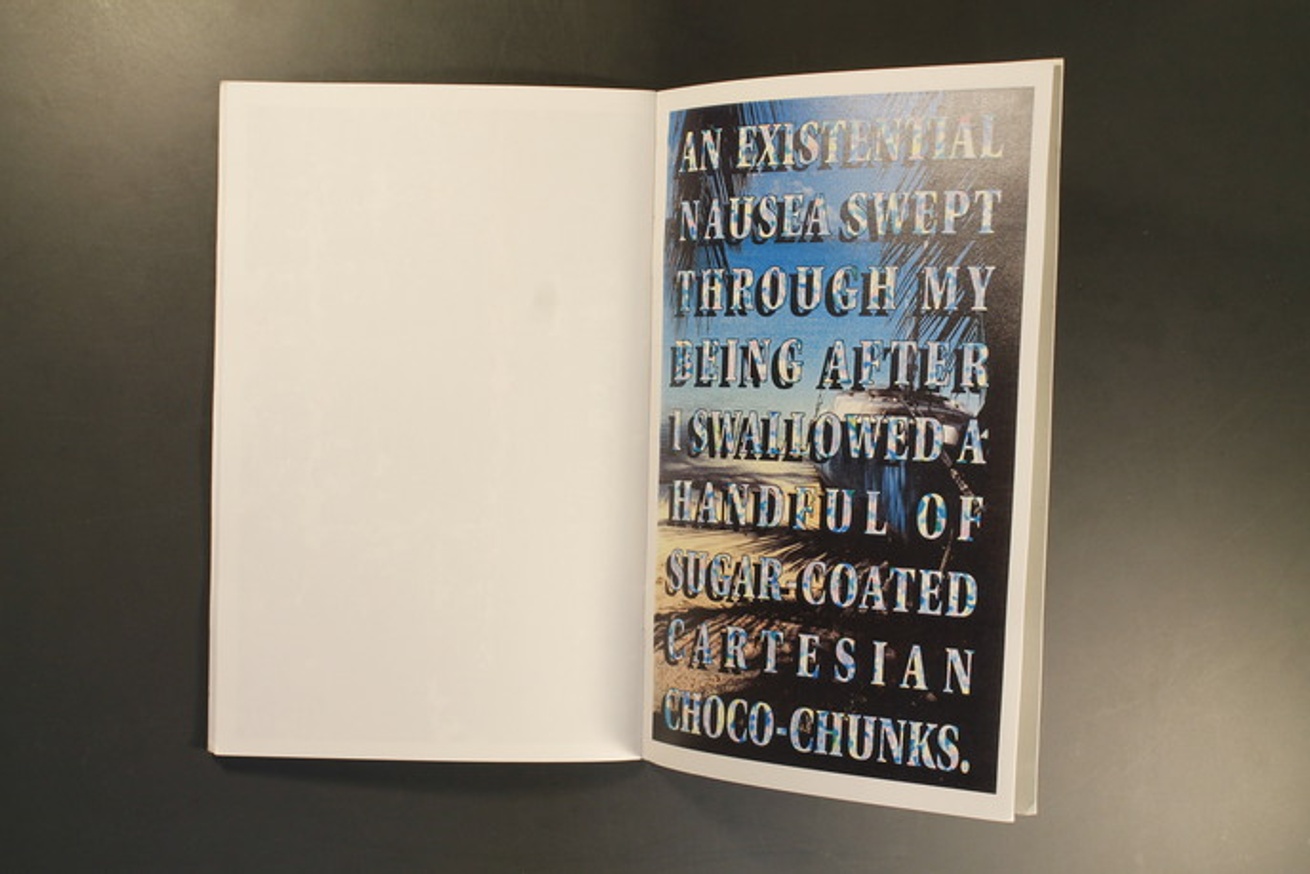 AN EXISTENTIAL
NAUSEA SWEPT
THROUGH MY
BEING AFTER
I SWALLOWED A
HANDFUL OF
SUGAR-COATED
CARTESIAN
CHOCO-CHUNKS.